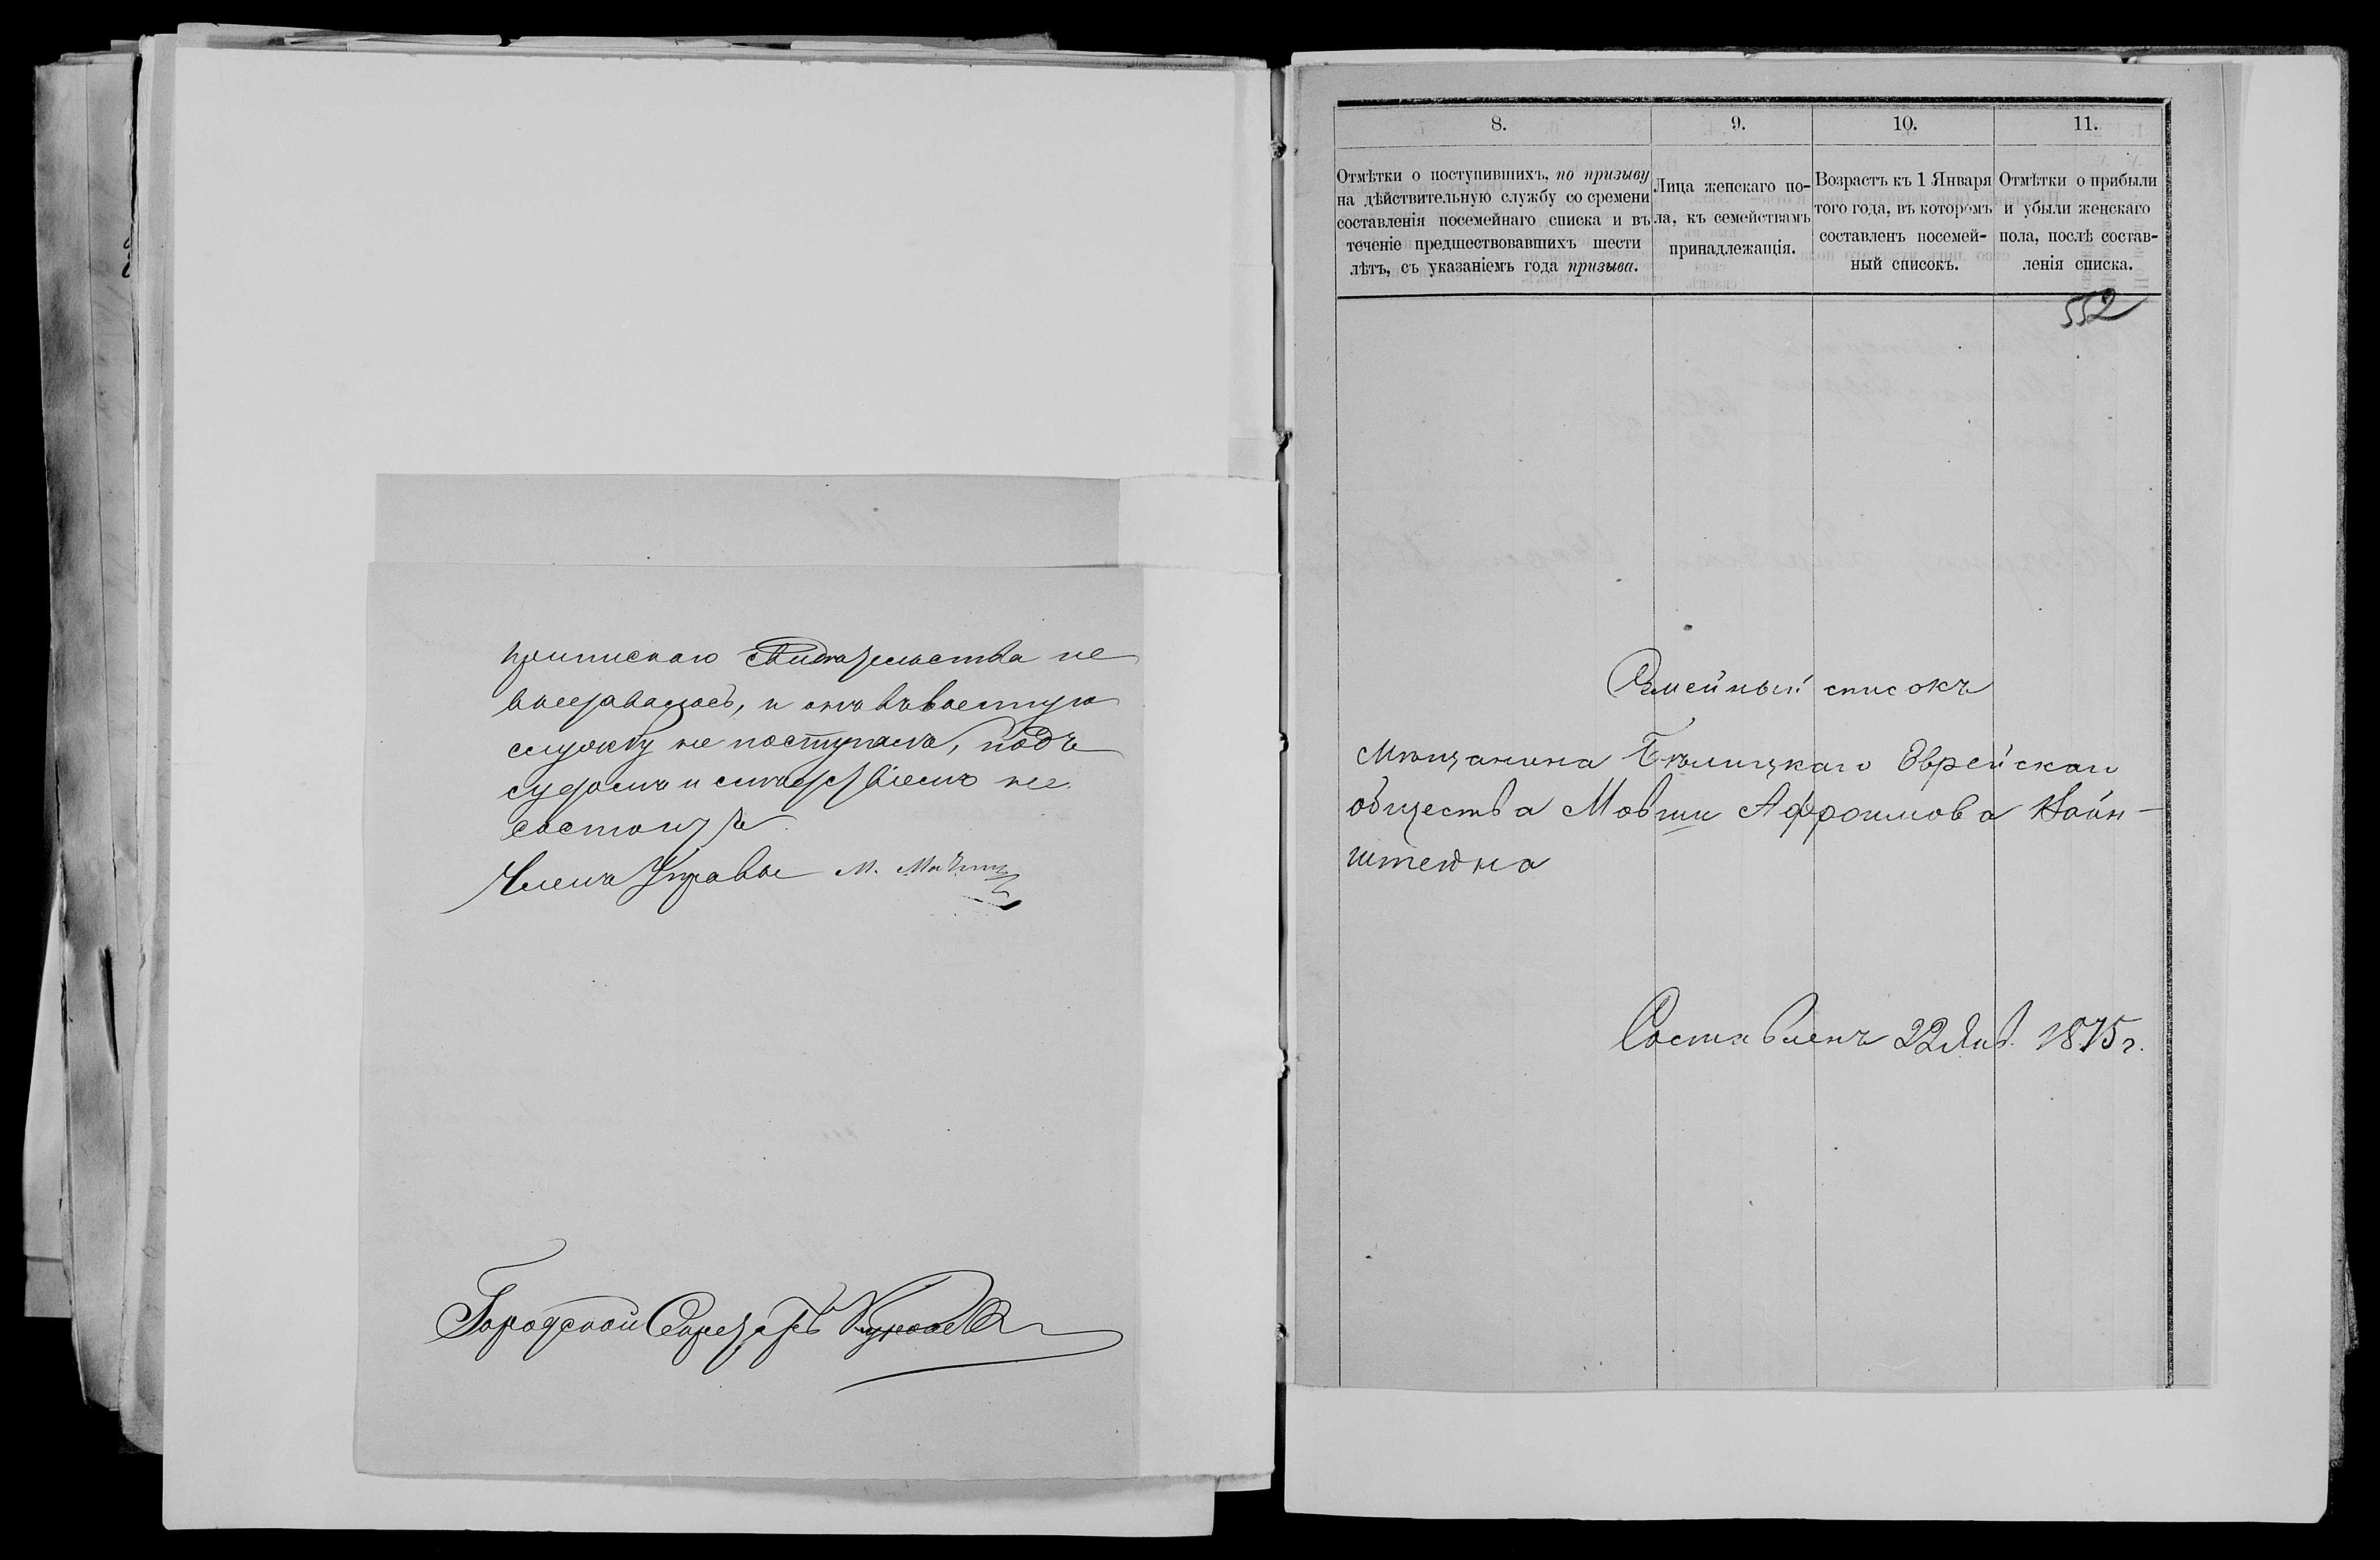 приписнаго свидѣтельства не
выдавалось, и онъ въ военную
службу не поступалъ, подъ
судомъ и слѣдствіемъ не
состоитъ.
Членъ Управы М.
Городской Секретарь
8.
9.
10.
11.
Отмѣтки о поступившихъ, по призыву
на дѣйствительную службу со времени
составленія посемейнаго списка и въ
теченіе предшествовавшихъ шести
лѣтъ, съ указаніемъ года призыва.
Лица женскаго по-
ла, къ семействамъ
принадлежащія.
Возрастъ къ 1 Января
того года, въ которомъ
составленъ посемей-
ный списокъ.
Отмѣтки о прибыли
и убыли женскаго
пола, послѣ состав-
ленія списка.
552
Семейный списокъ
Мѣщанина Бѣлицкаго Еврейскаго
общества Мовши Афроимова Вайн-
штейна
Составленъ 22 Янв. 1875 г.